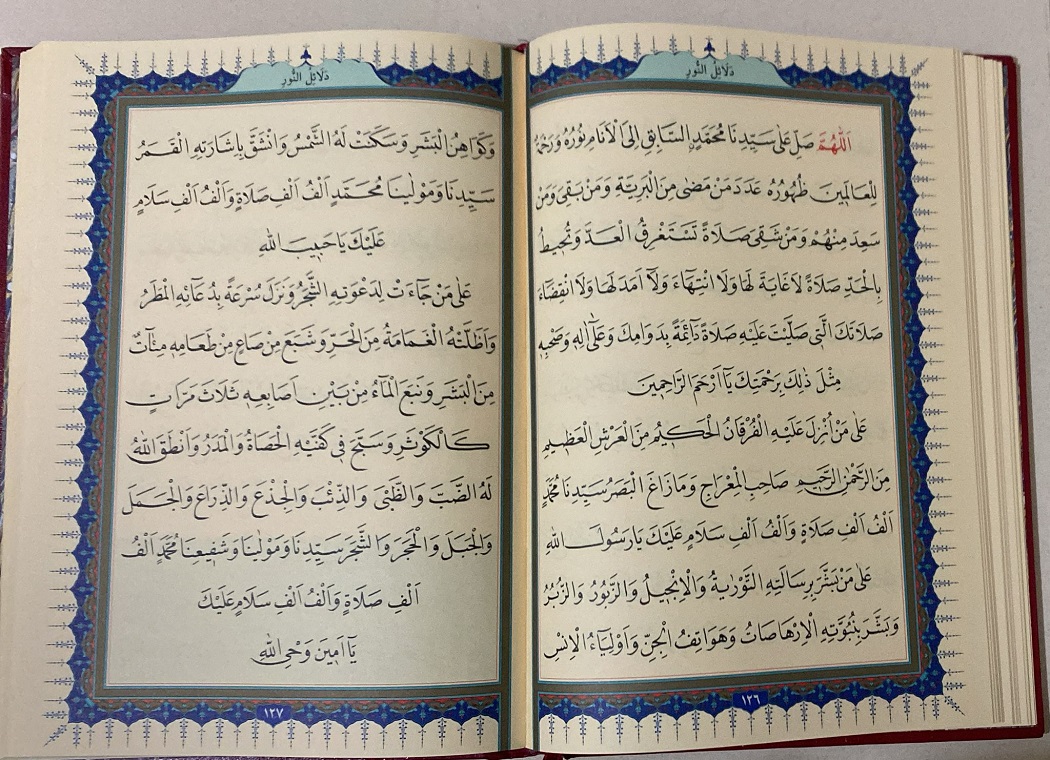 دَلَائِلُ النُّورِ
اَللّٰهُمَّ صَلِّ عَلٰى سَيِّدِنَا مُحَمَّدٍ السَّابِقِ اِلَى الْاَنَامِ نُورُهُ وَرَحْمَةٌ
لِلْعَالَمِينَ ظُهُورُهُ عَدَدَ مَنْ مَضٰى مِنَ الْبَرِيَّةِ وَمَنْ بَقِىَ وَمَنْ
سَعِدَ مِنْهُمْ وَمَنْ شَقِىَ صَلَاةً تَسْتَغْرِقُ الْعَدَّ وَتُحِيطُ
بِالْحَدِّ صَلَاةً لَا غَايَةَ لَهَا وَلَا انْتِهَاءَ وَلَا اَمَدَ لَهَا وَلَا انْقِضَاءَ
صَلَاتَكَ الَّتِى صَلَّيْتَ عَلَيْهِ صَلَاةً دَائِمَةً بِدَوَامِكَ وَعَلٰى اٰلِهِ وَصَحْبِهِ
مِثْلَ ذٰلِكَ بِرَحْمَتِكَ يَا اَرْحَمَ الرَّاحِمِينَ
عَلٰى مَنْ اُنْزِلَ عَلَيْهِ الْفُرْقَانُ الْحَكِيمُ مِنَ الْعَرْشِ الْعَظِيمِ
مِنَ الرَّحْمٰنِ الرَّحِيمِ صَاحِبِ الْمِعْرَاجِ وَمَازَاغَ الْبَصَرُ سَيِّدِنَا مُحَمَّدٍ
اَلْفُ اَلْفِ صَلَاةٍ وَاَلْفُ اَلْفِ سَلَامٍ عَلَيْكَ يَا رَسُولَ اللّٰهِ
عَلٰى مَنْ بَشَّرَ بِرِسَالَتِهِ التَّوْرٰيةُ وَالْاِنْجِيلُ وَالزَّبُورُ وَالزُّبُرُ
وَبَشَّرَ بِنُبُوَّتِهِ الْاِرْهَاصَاتُ وَهَوَاتِفُ الْجِنِّ وَاَوْلِيَاءُ الْاِنْسِ
١٢٦
دَلَائِلُ النُّورِ
وَكَوَاهِنُ الْبَشَرِ وَسَكَنَتْ لَهُ الشَّمْسُ وَانْشَقَّ بِاِشَارَتِهِ الْقَمَرُ
سَيِّدِنَا وَمَوْلٰينَا مُحَمَّدٍ اَلْفُ اَلْفِ صَلَاةٍ وَاَلْفُ اَلْفِ سَلَامٍ
عَلَيْكَ يَا حَبِيبَ اللّٰهِ
عَلٰى مَنْ جَاءَتْ لِدَعْوَتِهِ الشَّجَرُ وَنَزَلَ سُرْعَةً بِدُعَائِهِ الْمَطَرُ
وَاَظَلَّتْهُ الْغَمَامَةُ مِنَ الْحَرِّ وَشَبَعَ مِنْ صَاعٍ مِنْ طَعَامِهِ مِئَاتٌ
مِنَ الْبَشَرِ وَنَبَعَ الْمَاءُ مِنْ بَيْنِ اَصَابِعِهِ ثَلَاثَ مَرَّاتٍ
كَالْكَوْثَرِ وَسَبَّحَ فِى كَفَّيْهِ الْحَصَاةُ وَالْمَدَرُ وَاَنْطَقَ اللّٰهُ
لَهُ الضَّبَّ وَالظَّبْىَ وَالذِّئْبَ وَالْجِذْعَ وَالذِّرَاعَ وَالْجَمَلَ
وَالْجَبَلَ وَالْحَجَرَ وَالشَّجَرَ سَيِّدِنَا وَمَوْلٰينَا وَشَفِيعِنَا مُحَمَّدٍ اَلْفُ
اَلْفِ صَلَاةٍ وَاَلْفُ اَلْفِ سَلَامٍ عَلَيْكَ
يَا اَمِينَ وَحْىِ اللّٰهِ
١٢٧